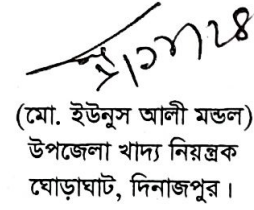 (মো. ইউনুস আলী মন্ডল)
উপজেলা খাদ্য নিয়ন্ত্রক
ঘোড়াঘাট, দিনাজপুর।